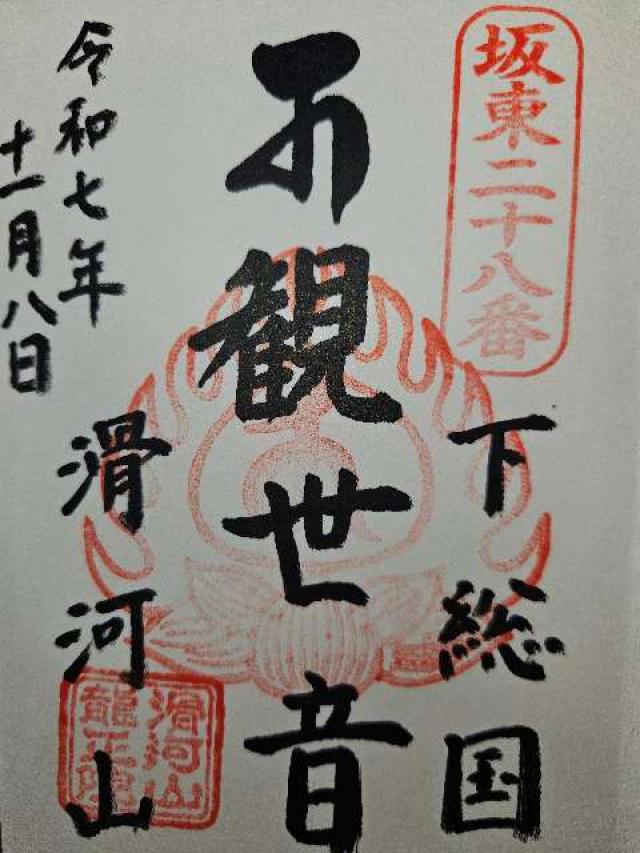 坂東二十八番
下総国
観世音
滑河山
令和七年
十一月八日
滑河山
龍正院